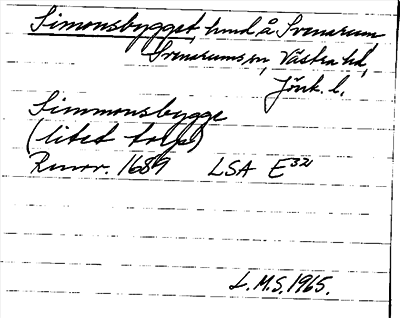 Simonsbygget, hmd å Svenarum
Svenarums sn, Västra hd,
Jönk. l.
Simmonsbygge
(litet torp)
Renov. 1689 LSA E321
L.M.S. 1965.